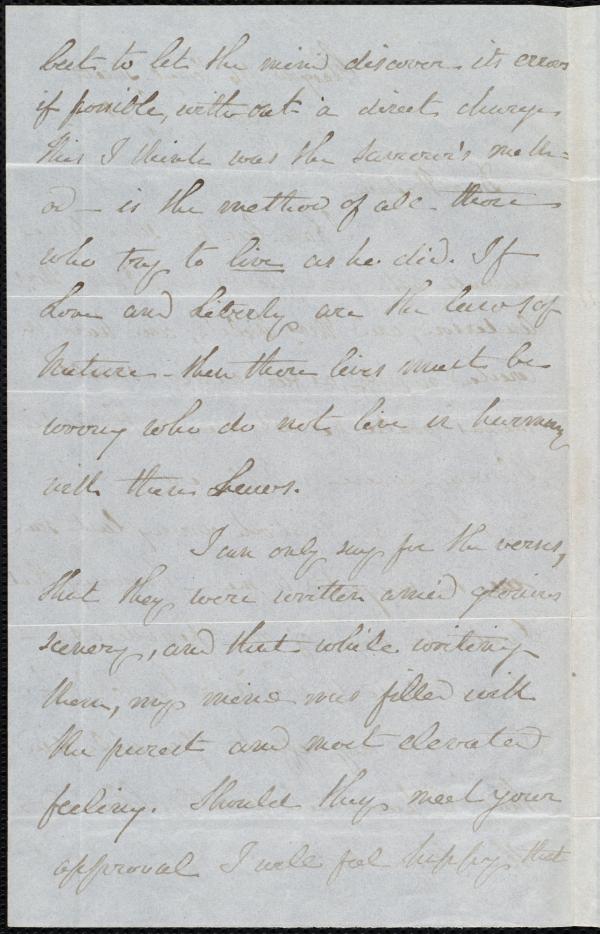 best to let the mind discover its errors
if possible, without a direct charge
this I think was the Saviour's meth=
od - is the method of all those
who try to live as he did. If
Love and Liberty are the laws of
Nature - then those lives must be
wrong who do not live in harmony
with these Laws.
I can only say for the verses,
that they were written amid glorious
scenery, and that while writing
them, my mind was filled with
the purest and most elevated
feeling. Should they meet your
approval I will feel happy, that